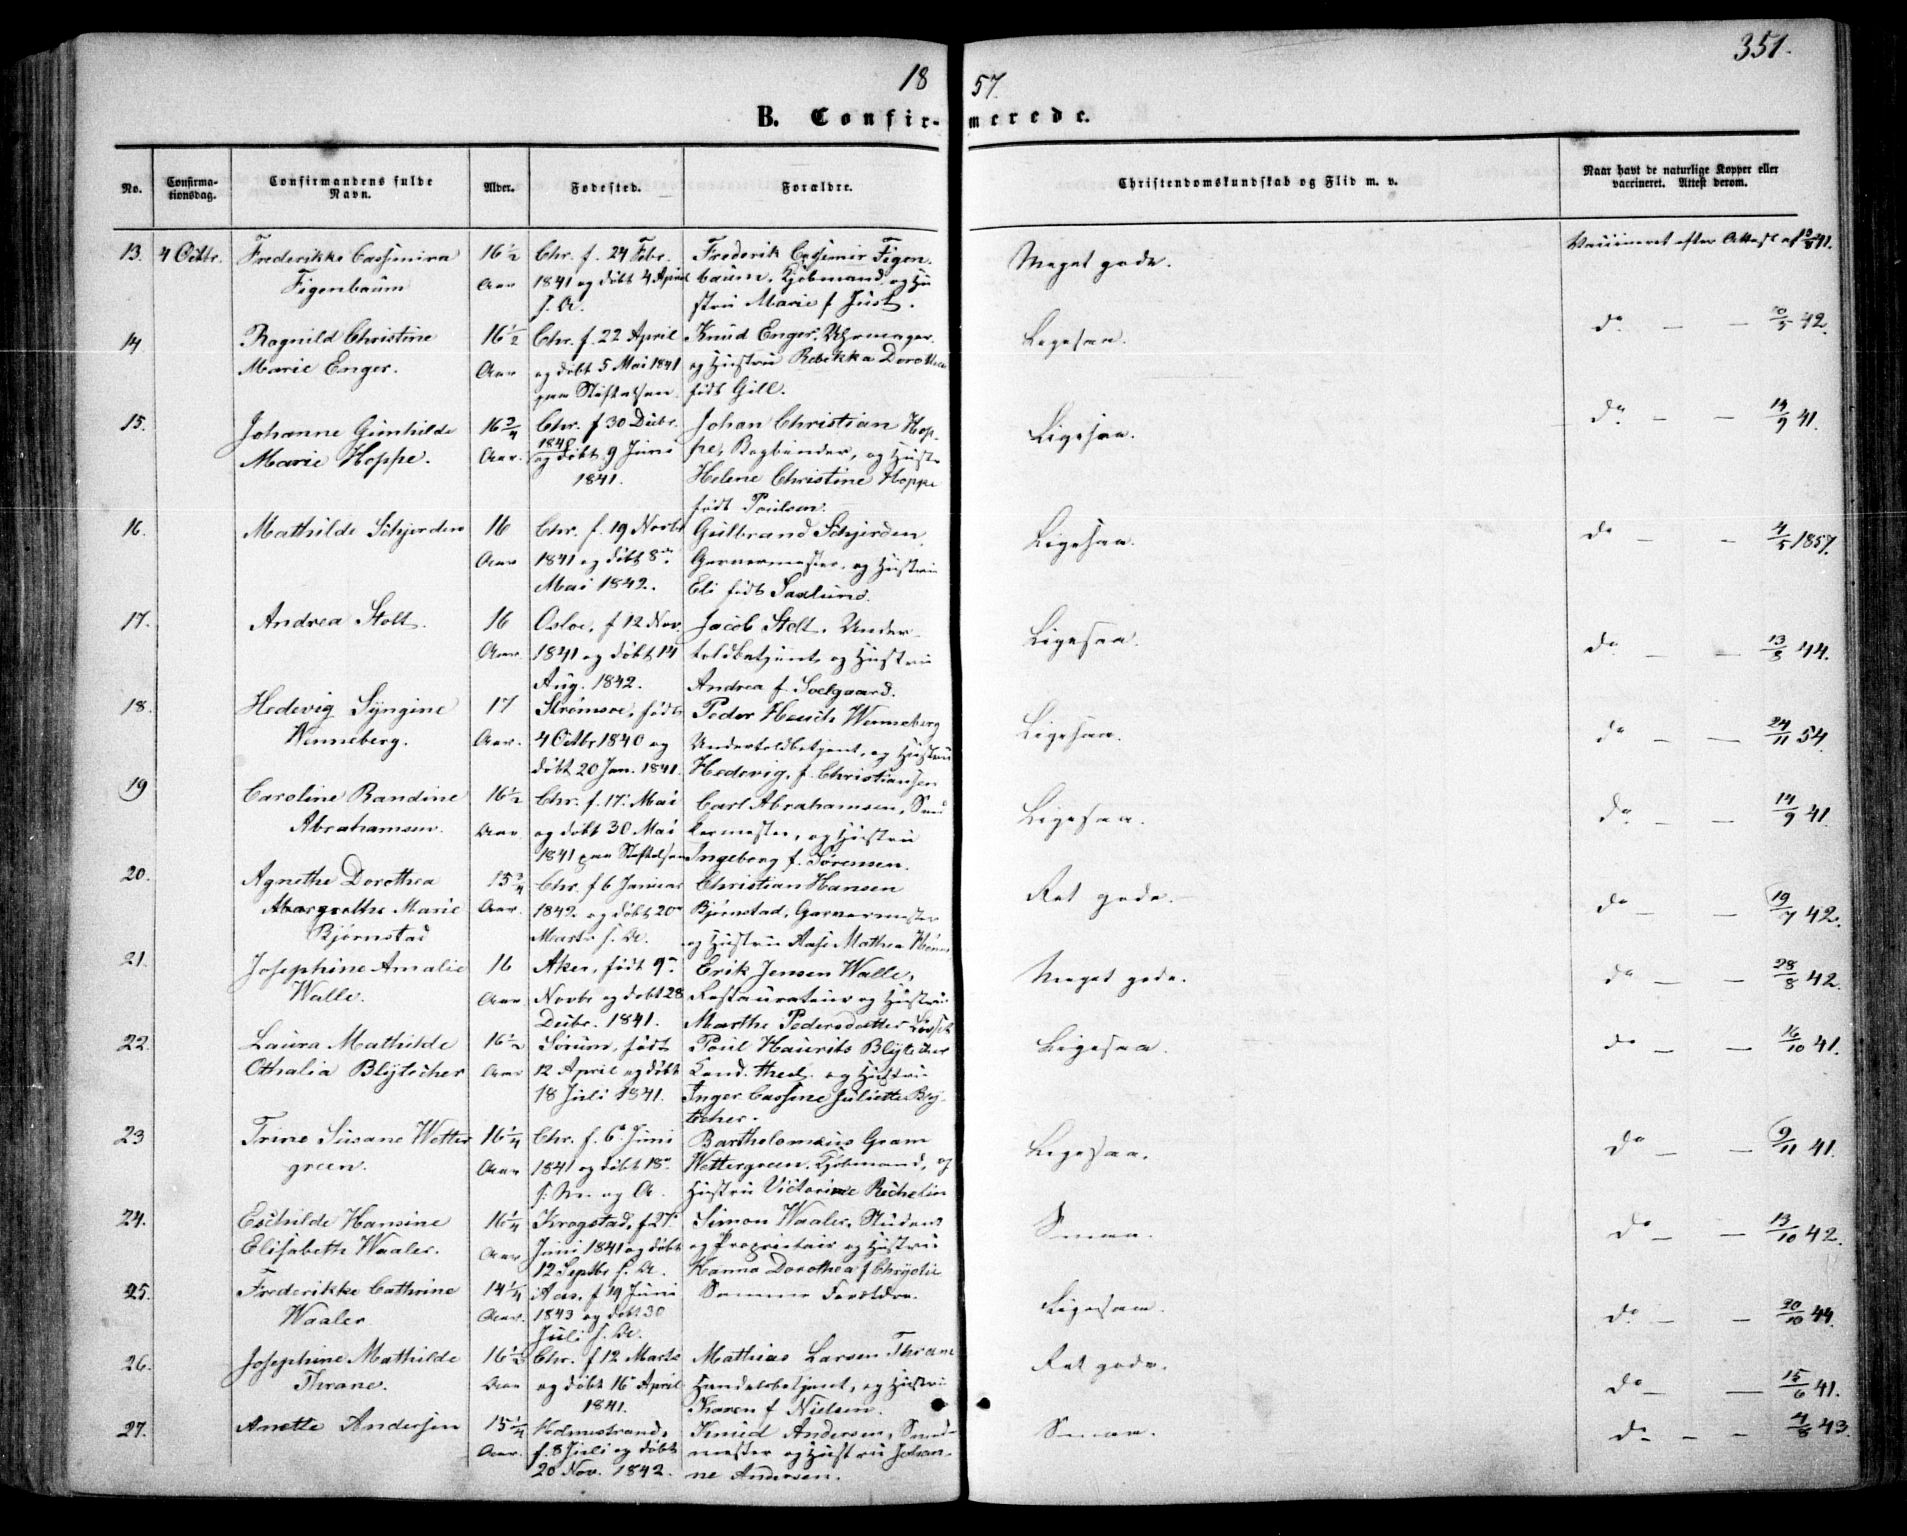 351.
18 57.
B. Confirmerede.
No.
Confirma-
tionsdag.
Confirmandens fulde
Navn.
Alder.
Fødested.
Forældre.
Christendomskundskab og Flid m. v.
Naar havt de naturlige Kopper eller
vaccineret. Attest derom.
13. 4 Octbr. Frederikke Cassimira 16 1/2 Chr. f. 24 Febr. Frederik Casimir Figen-
Figenbaum Aar 1841 og døbt 4 April baum, Kjøbmand og Hu
s. A. stru Marie f Just.
Meget gode. Vaccineret efter Attest af 41.
14 Ragnild Christine 16 1/2 Chr. f. 22 April Knud Enger, Uhrmager
Marie Enger. Aar og døbt 5 Mai 1841 og Hustru Rebekka Dorothea
paa Stiftelsen født Gill.
Ligesaa. do — — 42.
15. Johanne Gunhilde 16 3/4 Chr. f 30 Decbr. Johan Christian Hop-
Marie Hoppe. Aar. 1840 og døbt 9 Juni pe, Bogbinder, og Hustr
1841. Helene Christine Hoppe
født Poulsen.
Ligesaa. do — — 14/9 41.
16. Mathilde Schjerden 16 Chr. f. 19 Novbr Gulbrand Schjerden,
Aar 1841 og døbt 8de Garvermester, og Hustru
Mai 1842. Eli født Saxlund.
Ligesaa. do — — 4/5 1857.
17. Andrea Stolt. 16 Osloe, f 12 Nov. Jacob Stolt, Under-
Aar. 1841 og døbt 14 toldbetjent, og Hustru
Aug. 1842. Andrea f. Soelgaard.
Ligesaa. do — — 13/8 44.
18. Hedevig Syngine 17 Strømsoe, født Peder Wenneberg
Wenneberg. Aar. 4 Octbr 1840 og Undertoldbetjent, og Hustru
døbt 20 Jan. 1841. Hedevig, f. Christiansen
Ligesaa. do — — 24/11 54.
19 Caroline Randine 16 1/2 Chr. f. 17. Mai Carl Abrahamsen, Sned
Abrahamsen. Aar og døbt 30 Mai kermester, og Hustru
1841 paa Stiftelsen Ingeborg f. Sørensen.
Ligesaa. do — — 14/9 41.
20. Agnethe Dorothea 15 3/4 Chr. f 6 Januar Christian Hansen
Margrethe Marie Aar. 1842. og døbt 20de Bjørnstad, Garvermester
Bjørnstad Marts s. A. og Hustru Aase Mathea
Ret gode. do — — 19/7 42.
21. Josephine Amalie 16 Aker, født 9de Erik Jensen Walle,
Walle. Aar Novbr og døbt 28 Restaurateur og Hustru
Decbr. 1841. Marthe Pedersdatter
Meget gode. do — — 28/8 42.
22. Laura Mathilde 16 1/2 Sørum, født Poul Haurits Blytecher
Othalia Blytecher Aar 12 April og døbt Cand. theol. og Hustru
18 Juli 1841. Inger Cassine Juliette Bly-
techer.
Ligesaa. do — — 16/10 41.
23 Trine Susane Wetter 16 1/4 Chr. f. 6 Juni Bartholomæus Gram
green. Aar 1841 og døbt 18de Wettergreen, Kjøbmand, og
s. M. og A. Hustru Victorine Rechelin
Ligesaa. do — — 9/11 41.
24. Eschilde Hansine 16 1/4 Kragstad, f 27. Simon Waaler, Student
Elisabeth Waaler. Aar Juni 1841 og døbt og Proprietair og Hustru
12 Septbr s. A. Hanna Dorothea f Chrystie
Smaa. do — — 13/10 42.
25. Frederikke Cathrine 14 1/4 Aas, f 14 Juni Samme Forældre.
Waaler Aar. 1843 og døbt 30
Juli s. A.
Ligesaa. do — — 30/10 44.
26. Josephine Mathilde 16 1/2 Chr. f 12 Marts Mathias Larsen Thrane
Thrane. Aar og døbt 16 April Handelsbetjent, og Hustru
1841. Karen f Nielsen.
Ret gode. do — — 15/6 41.
27. Anette Andersen 15 1/4 Holmestrand, Knud Andersen, Smed-
Aar. f. 8 Juli og døbt mester og Hustru Johan-
20 Nov. 1842. ne Andersen.
Smaa. do — — 4/8 43.